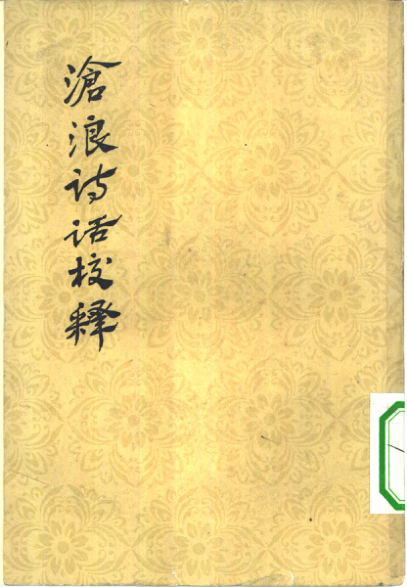 滄浪诗话校釋